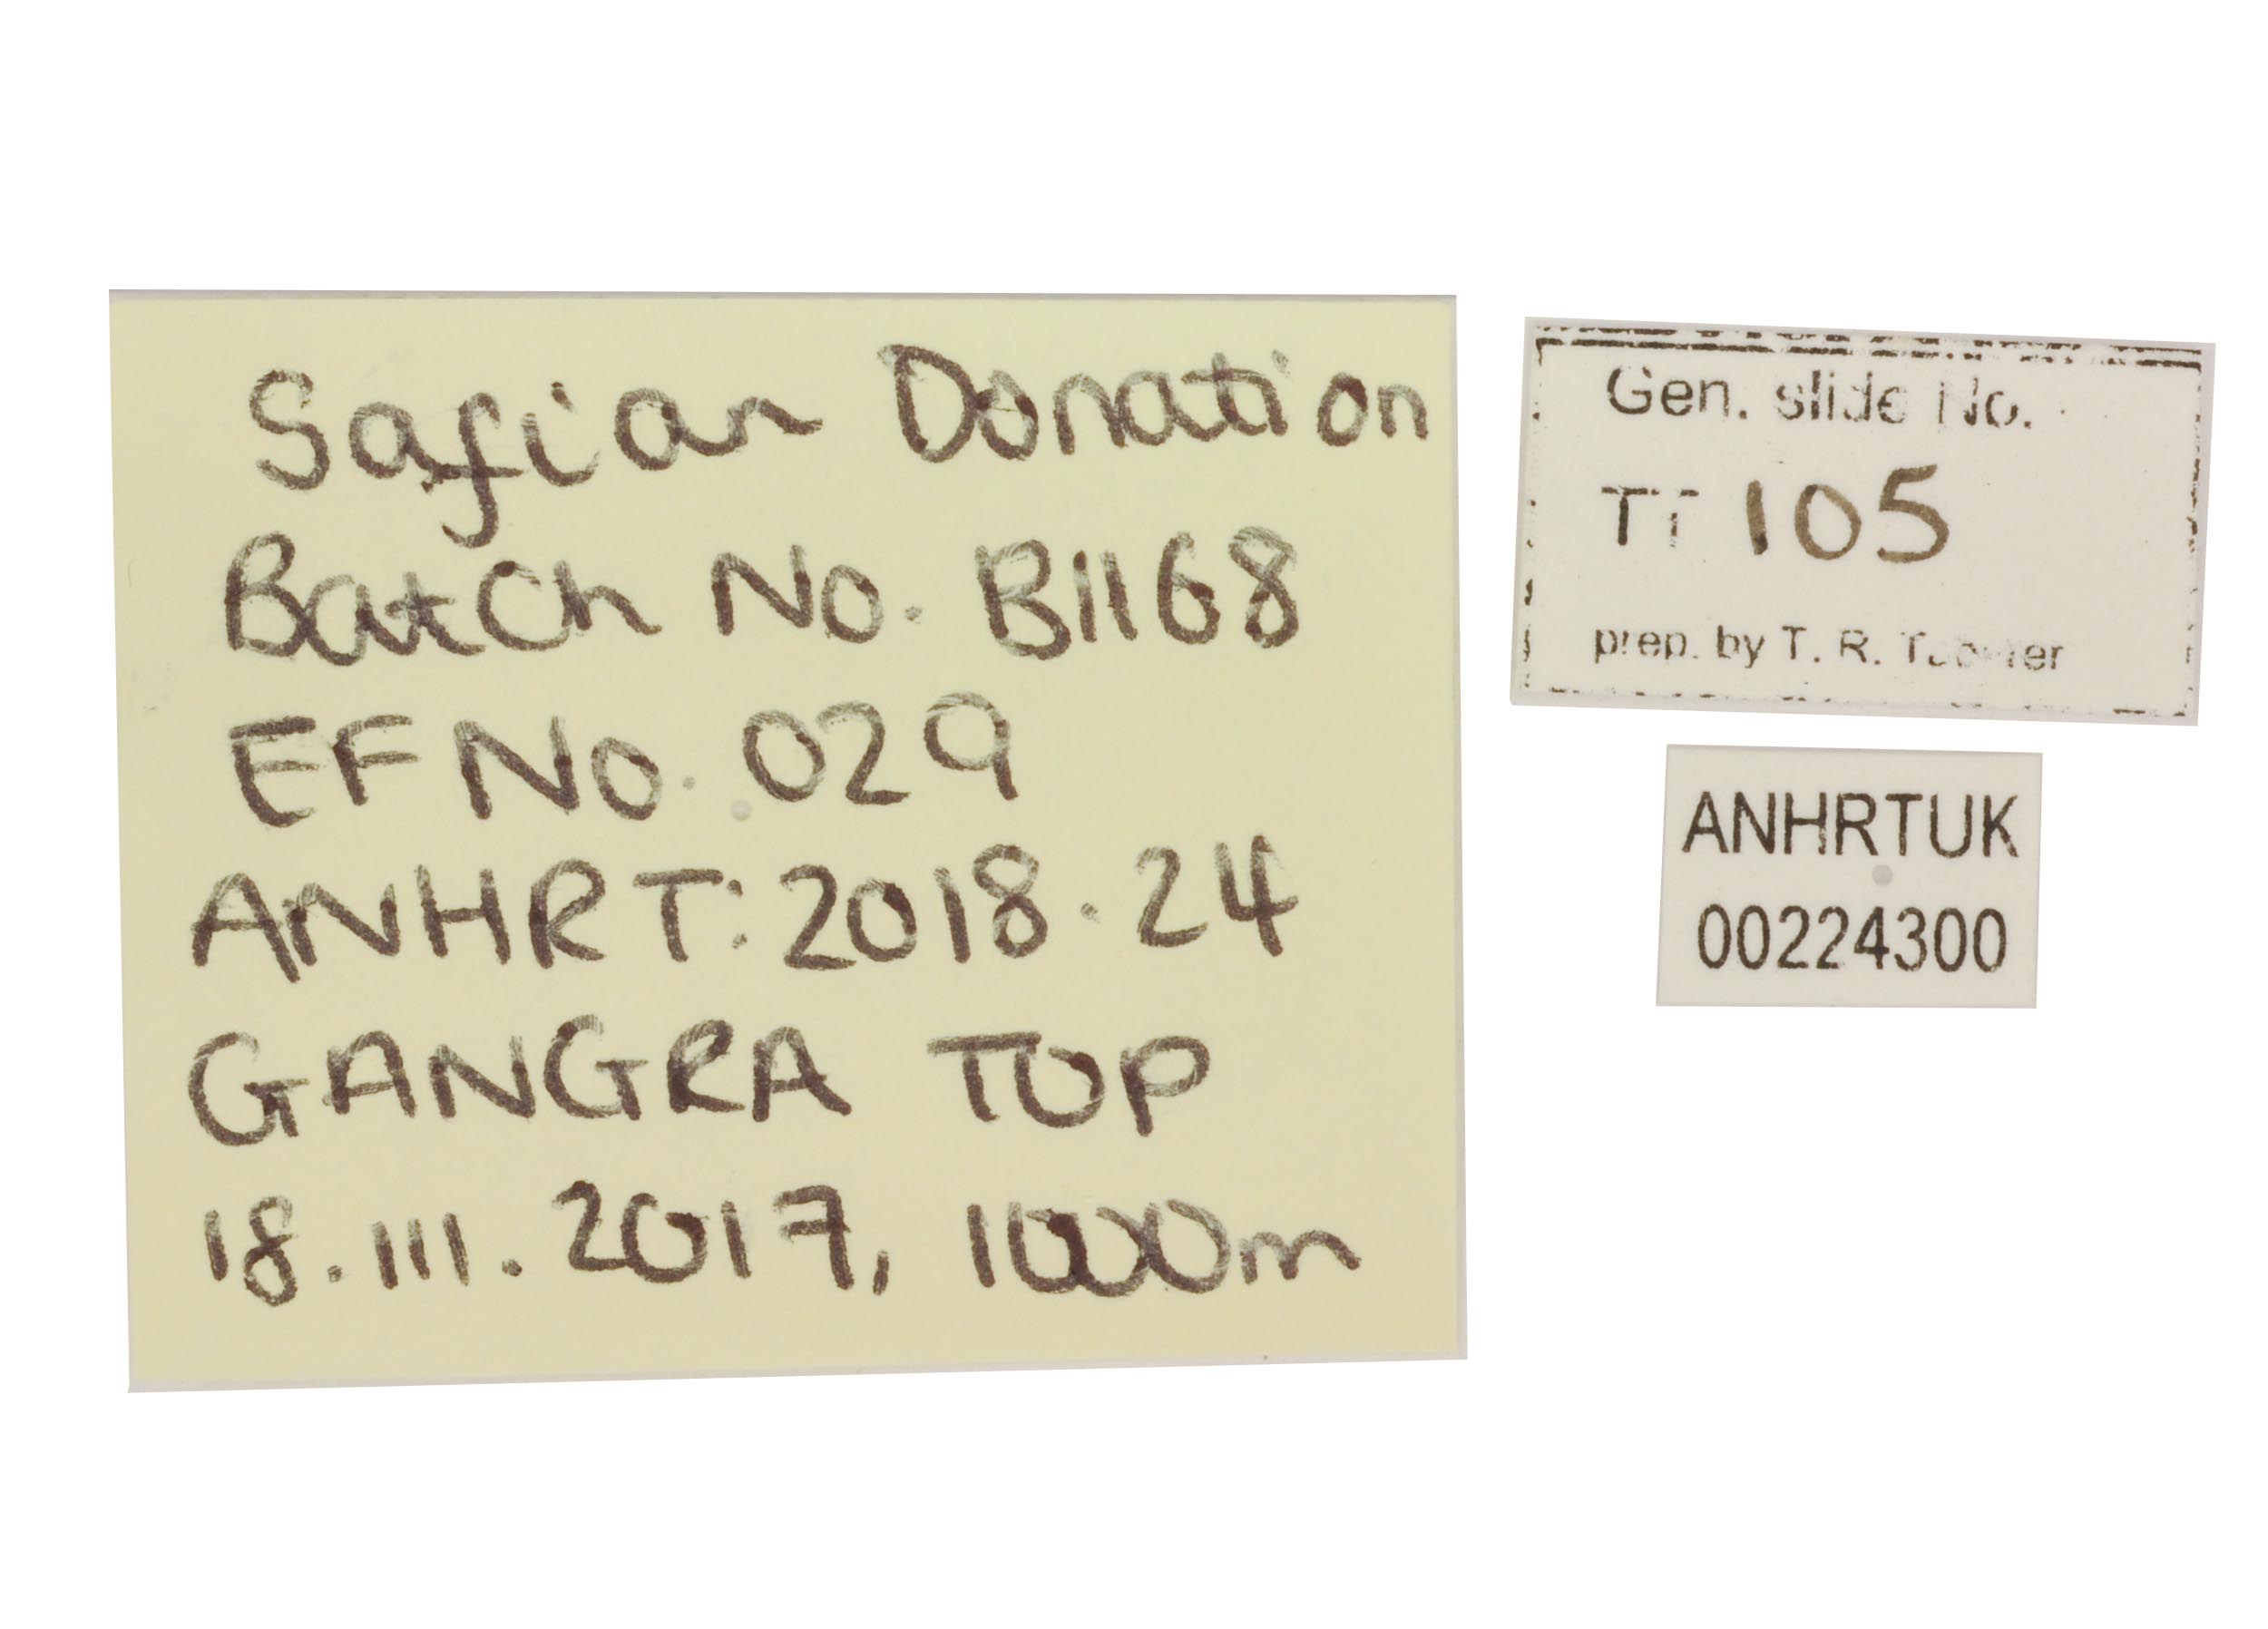 Safian Donation
Batch No. B1168
EF No. 029
ANHRT: 2018.24
GANGRA TOP
18.III.2017, 1000m
Gen. slide No.
TT 105
prep. by T. R.
ANHRTUK
00224300